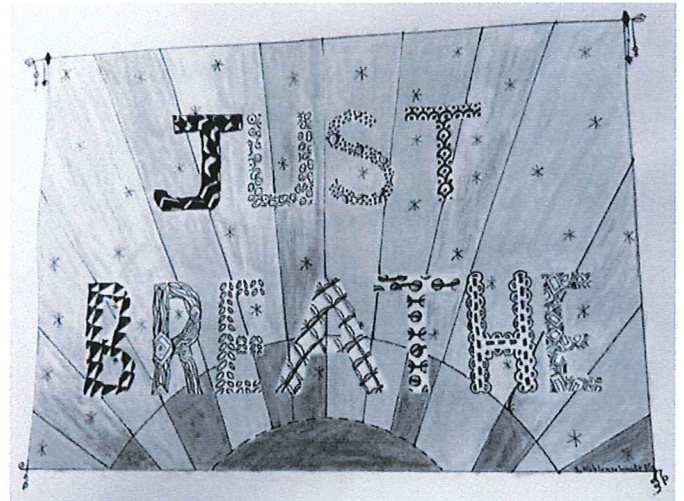 JUST
BREATHE